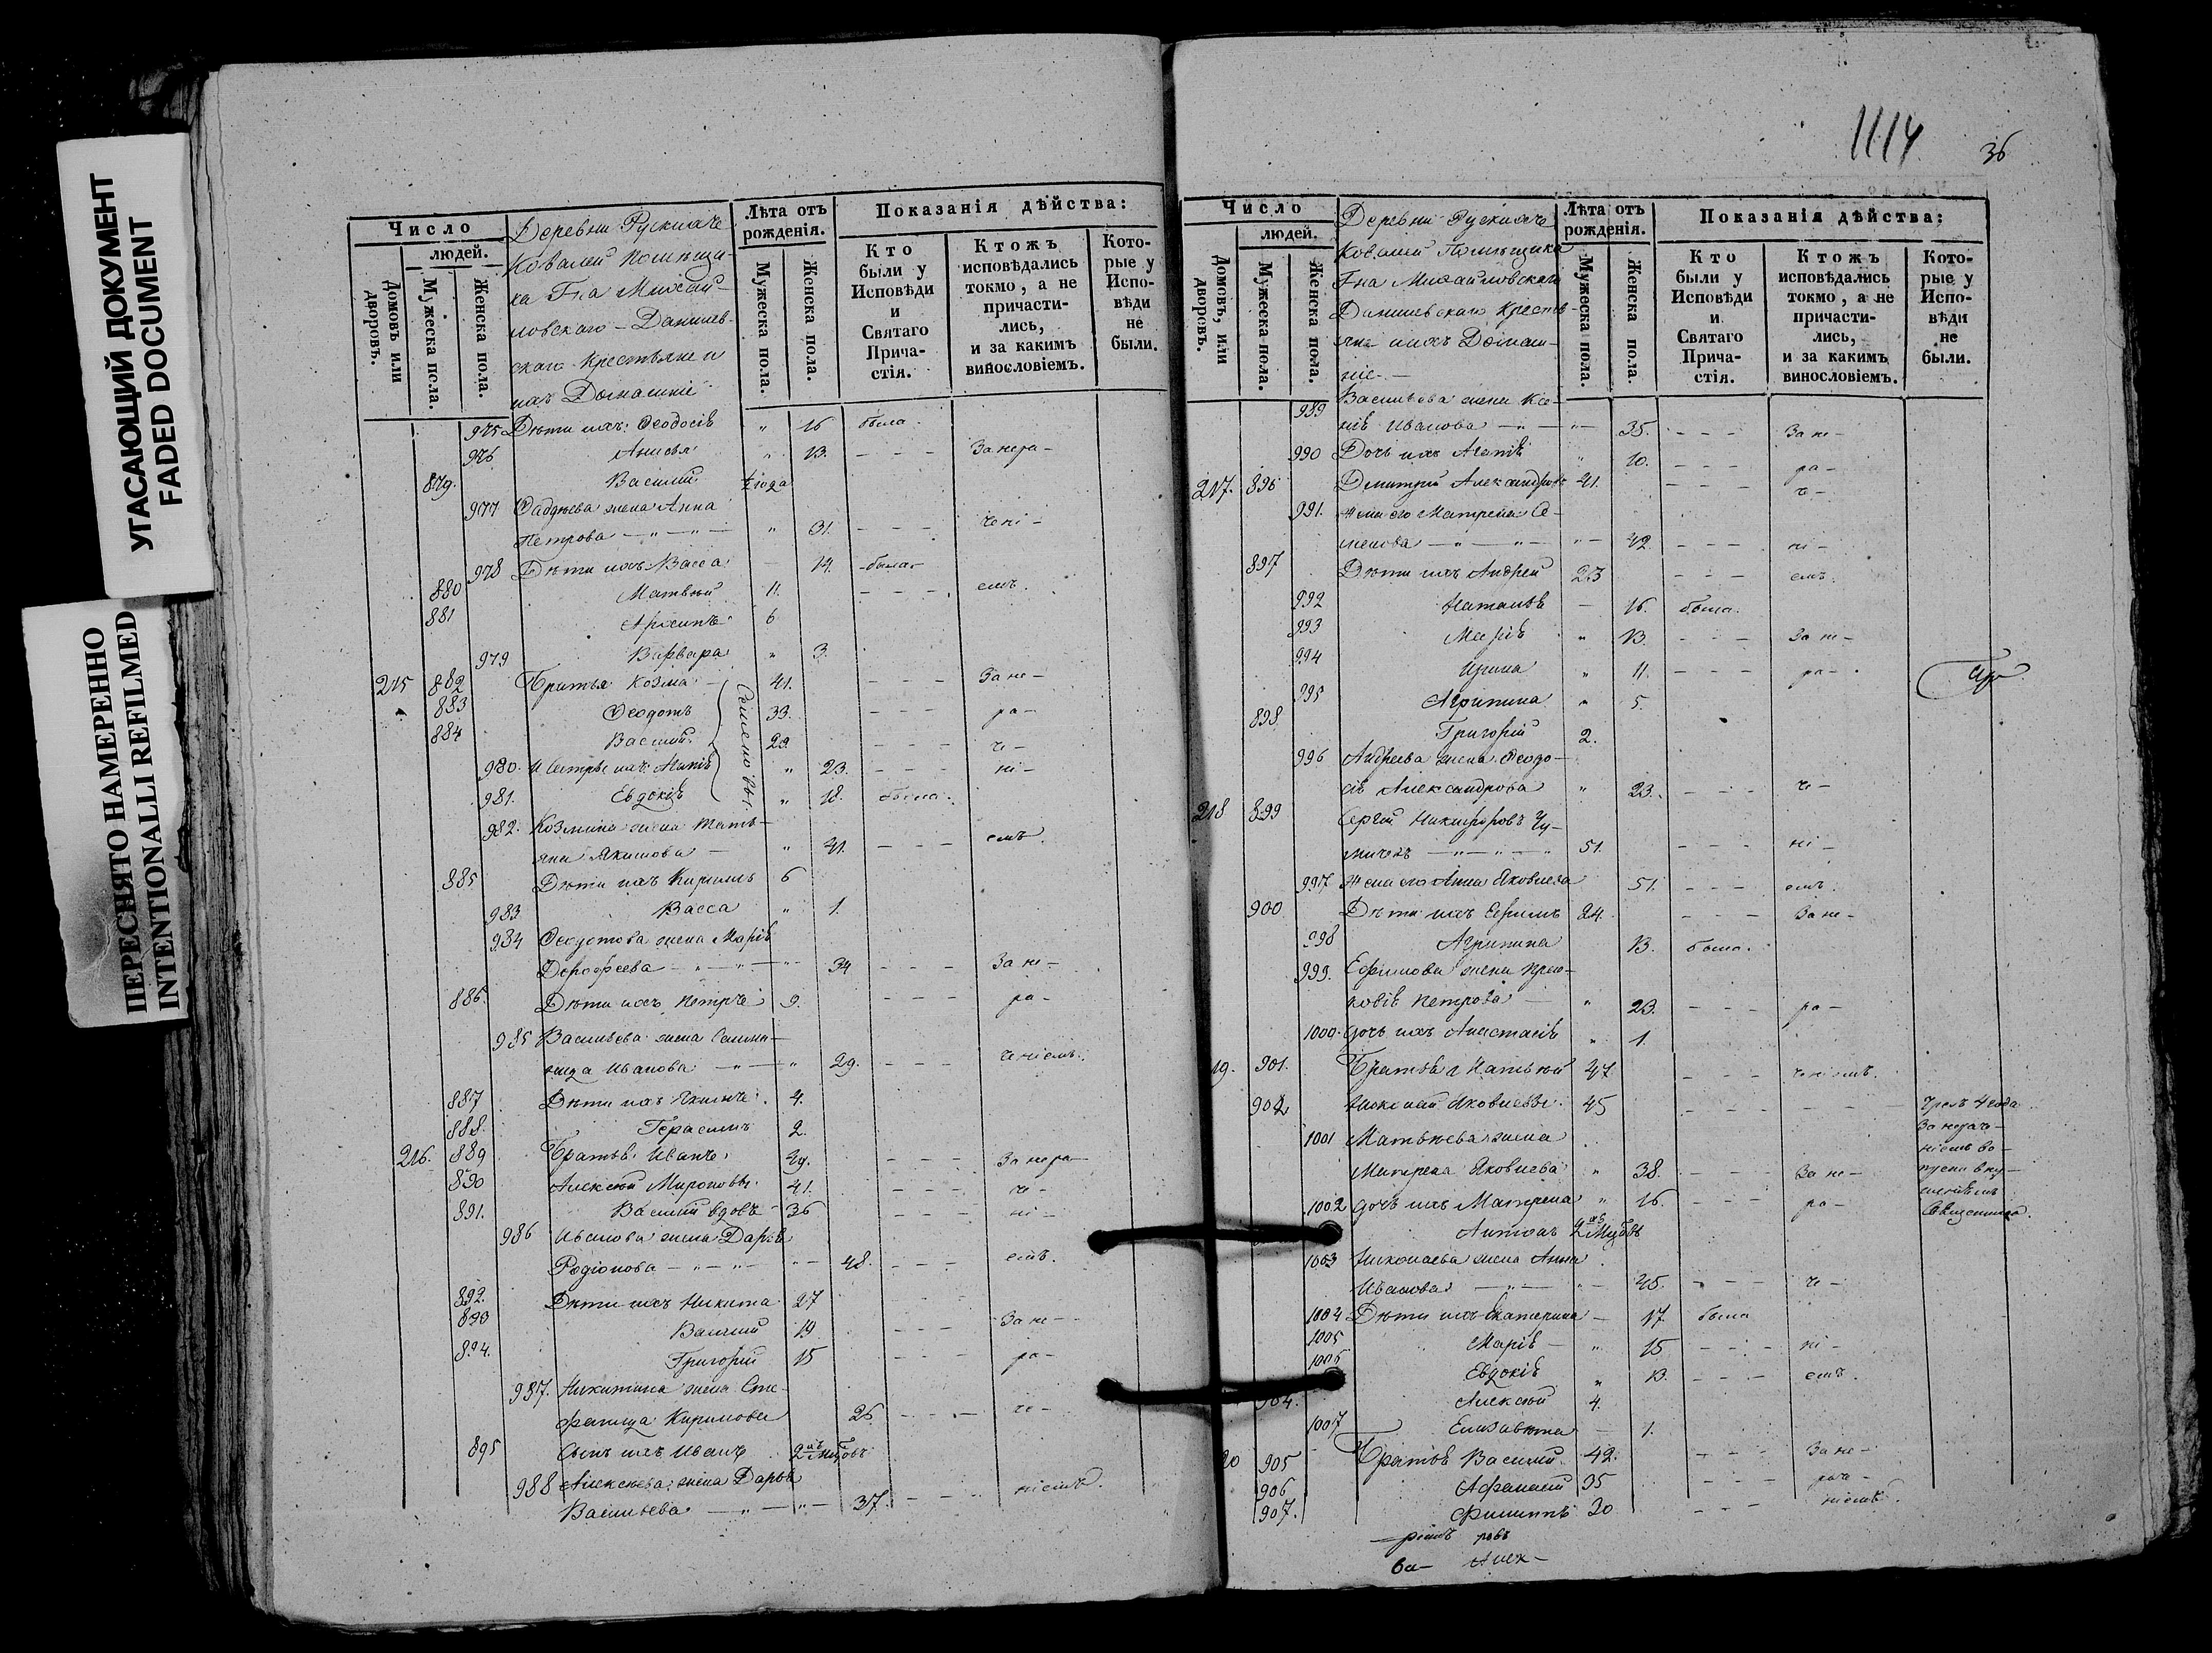 УТАСАЮЩИЙ ДОКУМЕНТ
FADED DOCUMENT
ПЕРЕСНЯТО НАМЕРЕННО
INTENTIONALLI REFILMED
Число
людей.
Домовъ или дворовъ.
Мужеска пола.
Женска пола.
Деревни Рускихъ
Ковалей помѣщи-
ка Гна Михай-
ловскаго-Данилев-
скаго крестьяне и
ихъ Домашніе
Лѣта отъ рожденія.
Мужеска пола.
Женска пола.
Показанія дѣйства:
Кто были у Исповѣди и Святаго Прича-стія.
Ктожъ исповѣдались токмо, а не причасти-лись, и за какимъ винословіемъ.
Кото-рые у Испо-вѣди не были.
975 Дѣти ихъ: Ѳеодосія " 16 была
976 Анисья " 13. - - - За нера-
879. Василий ½ года
977 Фаддѣева жена Анна
Петрова — " — " — " 31. - - - чені-
978 Дѣти ихъ Васса — 14. была
880 Матвѣй 11. - - - емъ.
881 Архипъ 6
979 Варвара " 3.
215 882 Братья Козма 41. - - - За не-
883 Ѳеодотъ 33. - - - ра-
884 Василий 29. - - - че-
Семеновы
980. И сестры ихъ: Агапія " 23. - - - ні-
981. Евдокія " 18. была.
982. Козмина жена Тать-
яна Якимова — " 41. - - - емъ.
885 Дѣти ихъ Кирилъ 6
983 Васса " 1.
984 Ѳеодотова жена Марія
Дорофеева — " — " — " 34 - - - За не-
886. Дѣти ихъ Петръ 9. - - - ра-
985 Васильева жена Соломо-
нида Иванова — " — " 29. - - - ченіемъ.
887 Дѣти ихъ Якимъ 4.
888. Герасимъ 2.
216. 889 Братья Иванъ 44. - - - За нера-
890 Алексѣй Мироновы 41. - - - че-
891. Василий вдовъ 36 - - - ні-
986 Иванова жена Дарья
Родіонова — " — " — " 48. - - - емъ.
892. Дѣти ихъ Никита 27
893 Василий 19 - - - За не-
894. Григорий 15 - - - ра-
987. Никитина жена Сте-
фанида Кирилова 26 - - - че-
895 Сынъ ихъ Иванъ 2хъ Мцовъ
988 Алексѣева жена Дарья
Васильева — " — " — 37. - - - ніемъ.
1114
36
Число
людей.
Домовъ, или дворовъ.
Мужеска пола.
Женска пола.
Деревни Рускихъ
Ковалей Помѣщика
Гна Михайловскаго
Данилевскаго Кресть-
яне и ихъ Домаш-
ніе. —
Лѣта отъ рожденія.
Мужеска пола.
Женска пола.
Показанія дѣйства:
Кто были у Исповѣди и Святаго Прича-стія.
Ктожъ исповѣдались токмо, а не причасти-лись, и за какимъ винословіемъ.
Кото-рые у Испо-вѣди не были.
989 Васильева жена Ксе-
нія Иванова — " — " — 35. - - - За не-
990 Дочь ихъ Агапія " 10. - - - ра-
217. 896 Дмитрий Александровъ 41. - - - че-
991. Жена его Матрена Се-
менова — " — " — " — 42. - - - ні-
897 Дѣти ихъ Андрей 23 - - - емъ.
992 Наталья — 16. была.
993 Марія " 13. - - - За не-
994 Ирина " 11. - - - ра-
995 Агрипина " 5.
898. Григорий 2.
996 Андреева жена Ѳеодо-
сія Александрова " 23. - - - че-
218 899 Сергий Никифоровъ Чу-
— " — " — " 51. - - - ні-
997 Жена его Анна Яковлева 51. - - - емъ.
900 Дѣти ихъ Ефимъ 24. - - - За не-
998 Агрипина 13. была.
999. Ефимова жена Прас-
ковія Петрова — " 23. - - - ра-
1000. дочь ихъ Анастасія " 1.
19. 901. Братья Матвѣй 47. - - - ченіемъ.
902. Николай Яковлевы. 45 - - - - - - Чрезъ 4 года
За нераче-
ніемъ
1001 Матвѣева жена
Матрена Яковлева " 38. - - - За не-
1002 дочь ихъ Матрена " 16. - - - ра-
Священника.
Антонъ 2хъ Мцовъ
1003 Николаева жена Анна
Иванова — " — " — 45. - - - че-
1004 Дѣти ихъ Екатерина — 17. была
1005 Марія — " 15 - - - ні-
1006 Евдокія " 13. - - - емъ.
904. Алексѣй 4.
1007 Елисавета — 1.
20 905 Братья Василий 42. - - - За не-
906 Афанасий 35 - - - раче-
907. Филиппъ 30 - - - ніемъ.
Алек-